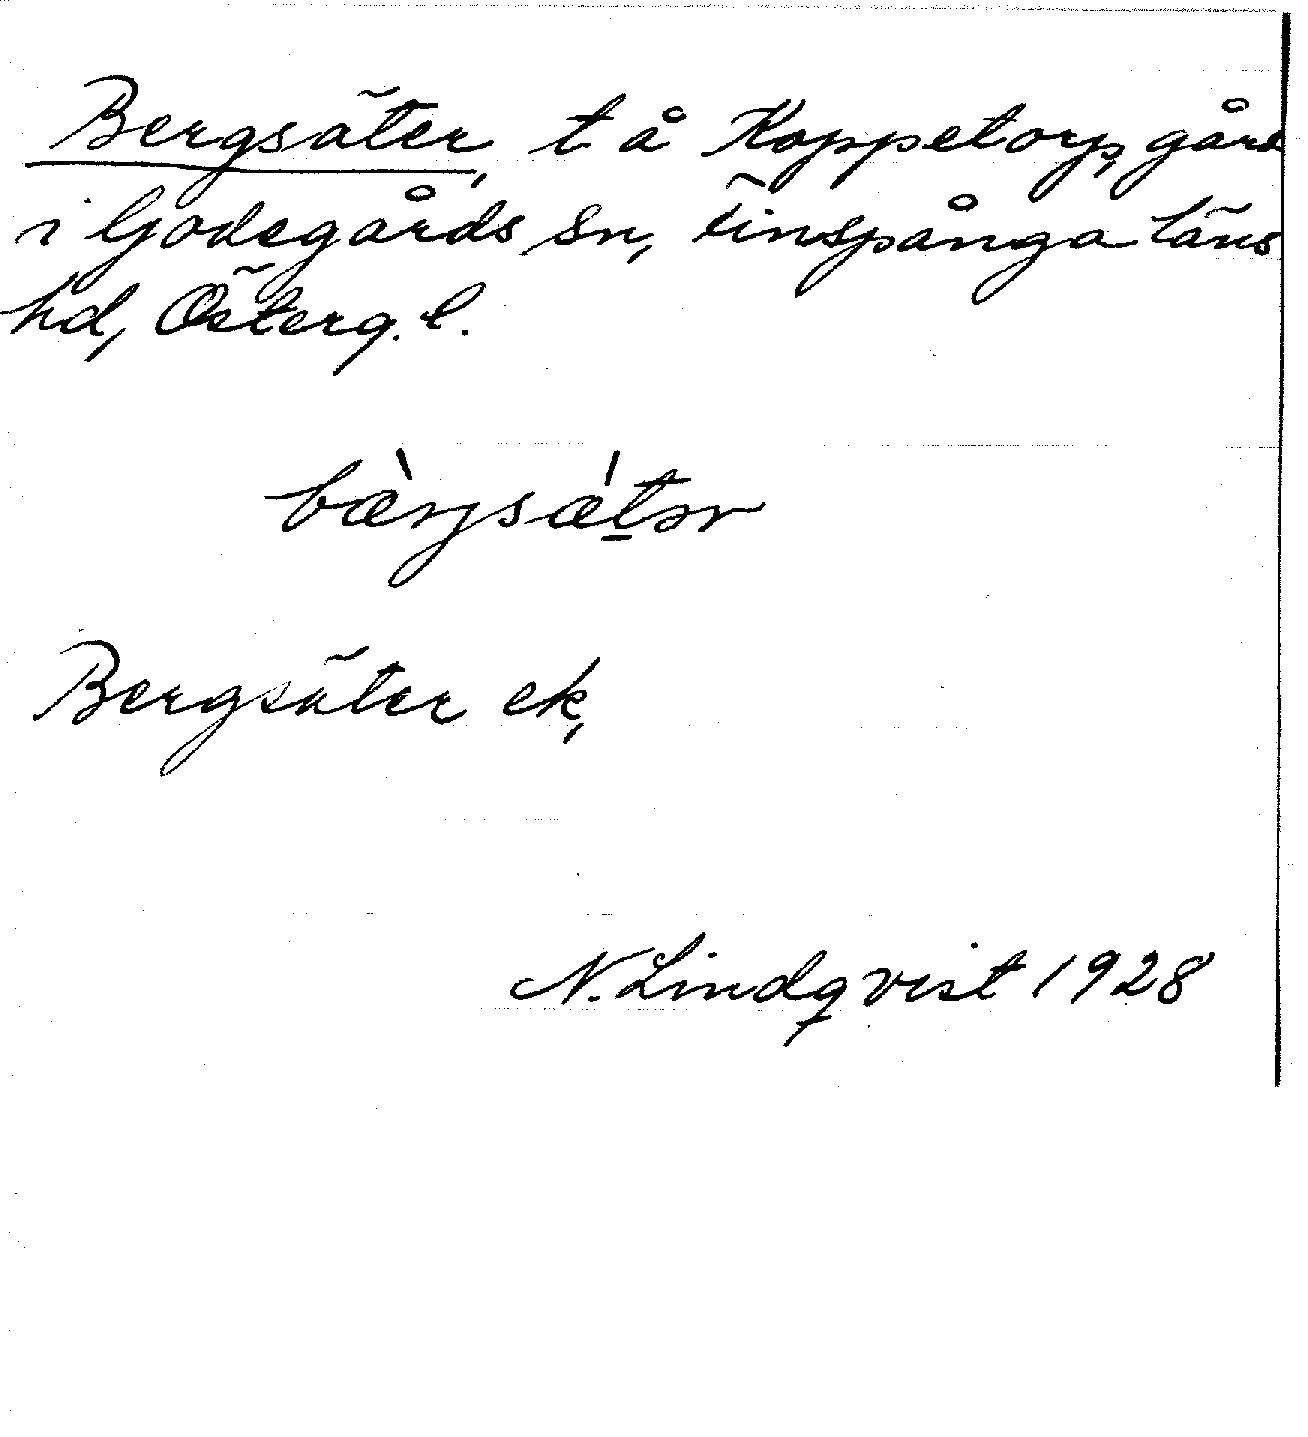 Bergsäter, t å Koppetorp, gård
i Godegårds sn, Finspånga läns
hd, Österg. l.
bæ̀rjsǽtər
Bergsäter ek,
N. Lindqvist 1928